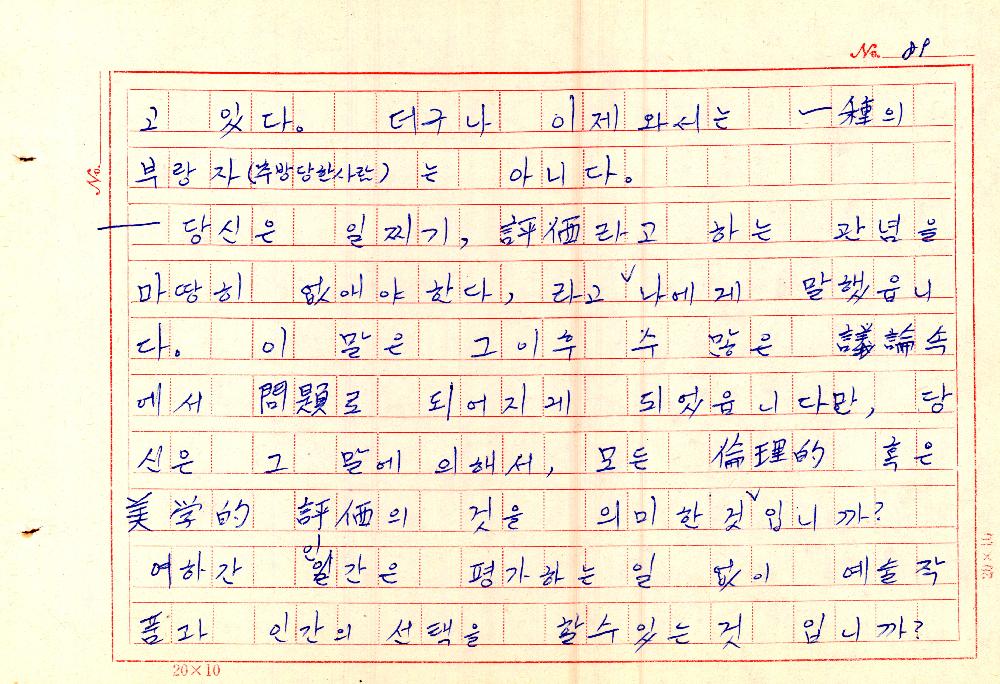 No. 89
고 있다. 더구나 이제 와서는 一種의
부랑자(추방당한사람)는 아니다.
— 당신은 일찌기, 評価라고 하는 관념을
마땅히 없애야 한다, 라고 나에게 말했읍니
다. 이 말은 그이후 수 많은 議論속
에서 問題로 되어지게 되었읍니다만, 당
신은 그 말에 의해서, 모든 倫理的 혹은
美学的 評価의 것을 의미한것입니까?
여하간 인간은 평가하는 일 없이 예술작
품과 인간의 선택을 할수있는것 입니까?
20×10
No.
20×10